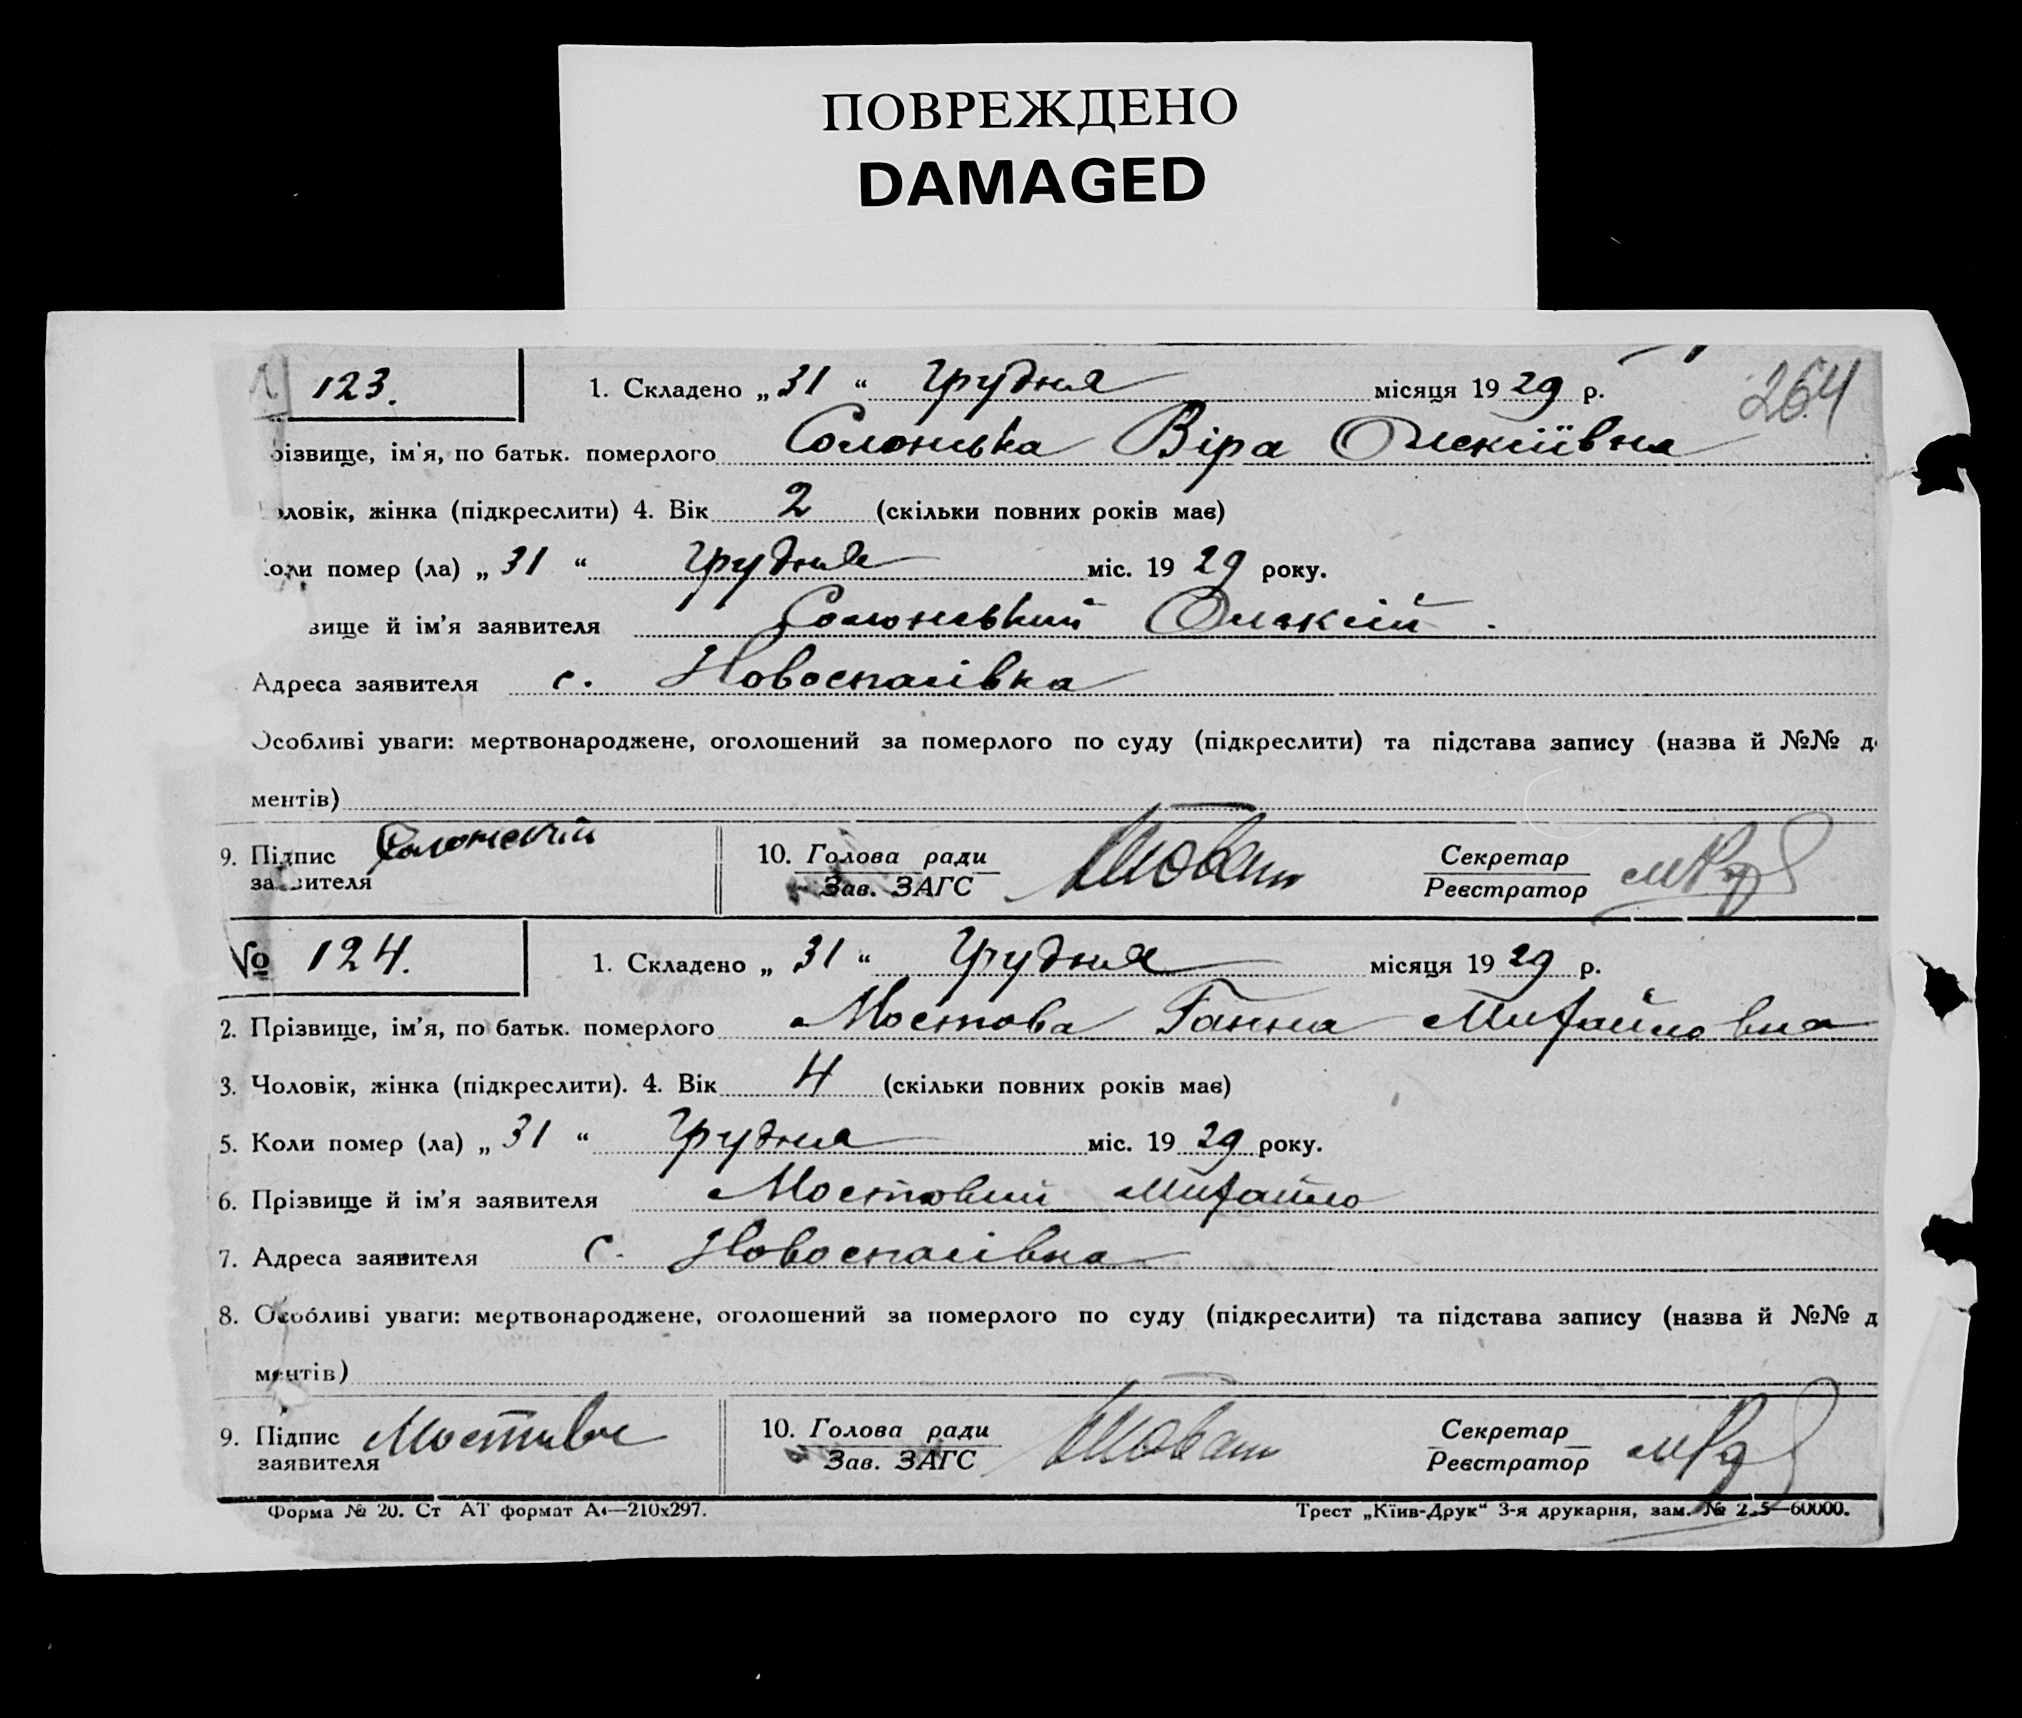 ПОВРЕЖДЕНО
DAMAGED
264
123. 1. Складено „ 31 “ Грудня місяця 19 29 р.
різвище, ім'я, по батьк. померлого Солонська Віра Олексіївна
оловік, жінка (підкреслити) 4. Вік 2 (скільки повних років має)
коли помер (ла) „ 31 “ Грудня міс. 19 29 року.
звище й ім'я заявителя Солонський Олексій.
Адреса заявителя с. Новоспасівка
Особливі уваги: мертвонароджене, оголошений за померлого по суду (підкреслити) та підстава запису (назва й №№ д
ментів)
9. Підпис заявителя Солонський 10. Голова ради Зав. ЗАГС Секретар Реєстратор
№ 124. 1. Складено „ 31 “ Грудня місяця 19 29 р.
2. Прізвище, ім'я, по батьк. померлого Мостова Ганна Михайловна
3. Чоловік, жінка (підкреслити). 4. Вік 4 (скільки повних років має)
5. Коли помер (ла) „ 31 “ Грудня міс. 19 29 року.
6. Прізвище й ім'я заявителя Мостовий Михайло
7. Адреса заявителя с. Новоспасівка
8. Особливі уваги: мертвонароджене, оголошений за померлого по суду (підкреслити) та підстава запису (назва й №№ д
ментів)
9. Підпис заявителя 10. Голова ради Зав. ЗАГС Секретар Реєстратор
Форма № 20. Ст АТ формат А4—210x297. Трест „Київ-Друк“ 3-я друкарня, зам. №